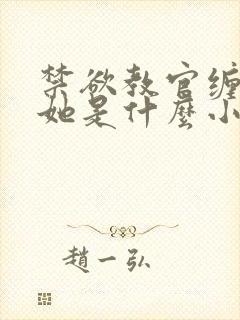 禁欲教官缠
她是什麼小
趙一弘